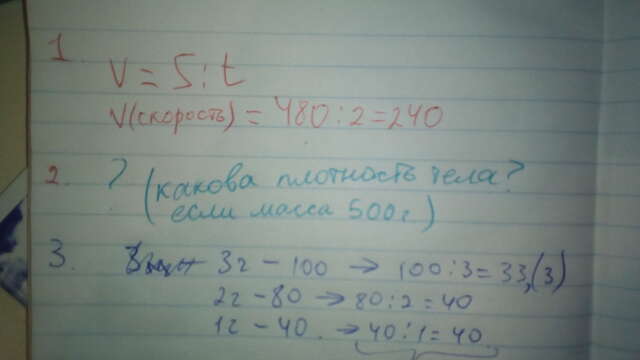 1.
V = S : t
V(скорость) = 480 : 2 = 240
2. ? (какова плотность тела?
если масса 500г.)
3. 3г - 100 → 100 : 3 = 33,(3)
2г - 80 → 80 : 2 = 40
1г - 40. → 40 : 1 = 40.